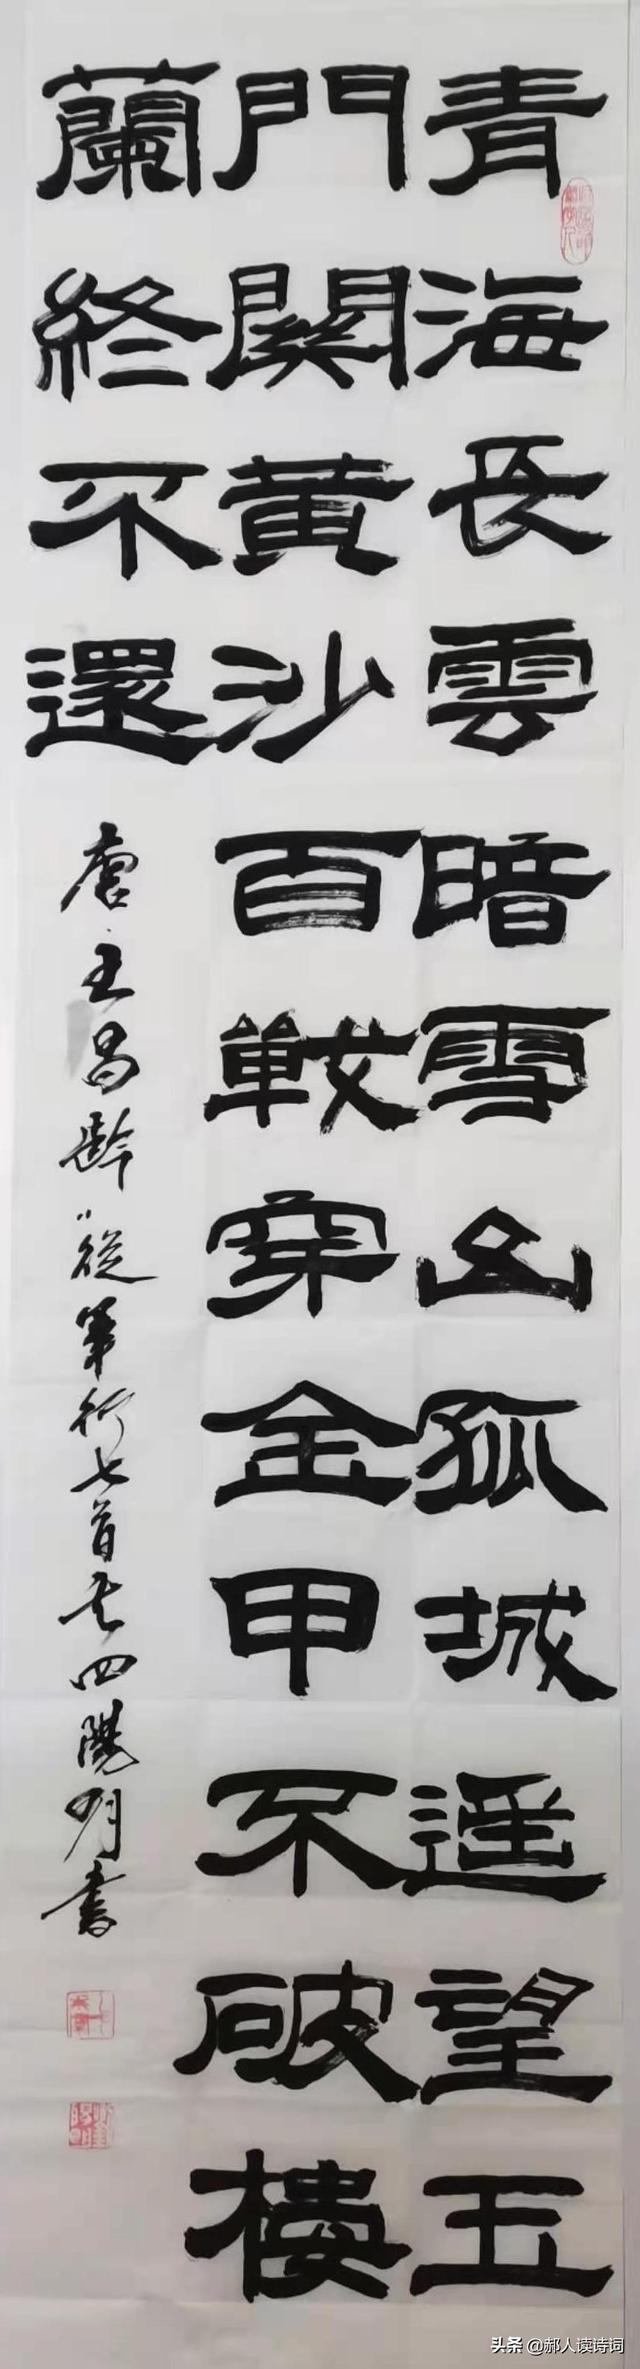 青海長雲暗雪山孤城遥望玉
門関黄沙百戰穿金甲不破樓
蘭終不還
唐·王昌齡“從軍行七首其四陽明書
头条 @郝人读诗词